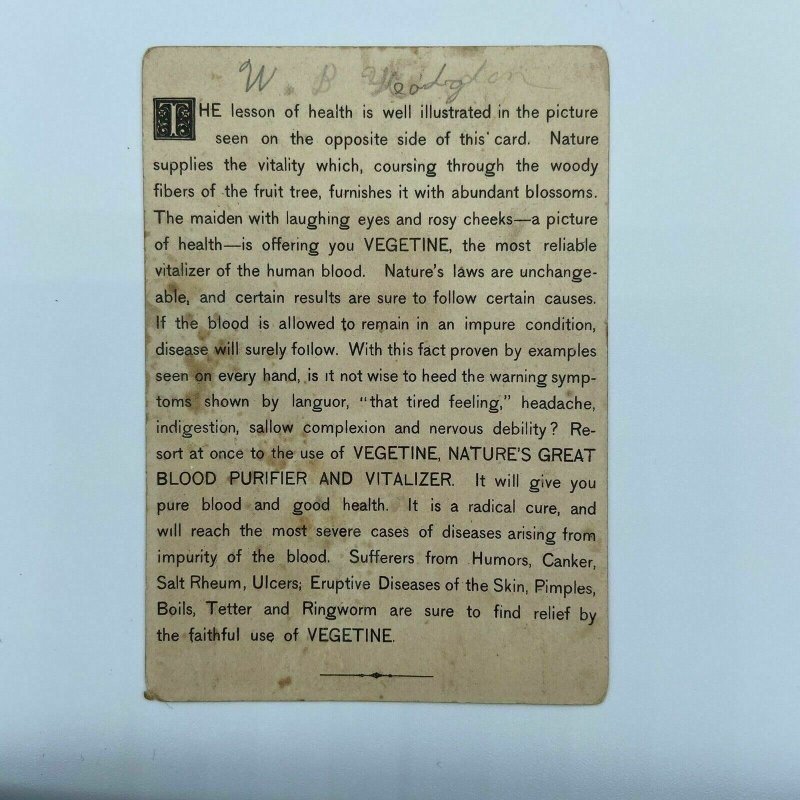 W. B
THE lesson of health is well illustrated in the picture
seen on the opposite side of this card. Nature
supplies the vitality which, coursing through the woody
fibers of the fruit tree, furnishes it with abundant blossoms.
The maiden with laughing eyes and rosy cheeks—a picture
of health—is offering you VEGETINE, the most reliable
vitalizer of the human blood. Nature's laws are unchange-
able, and certain results are sure to follow certain causes.
If the blood is allowed to remain in an impure condition,
disease will surely follow. With this fact proven by examples
seen on every hand, is it not wise to heed the warning symp-
toms shown by languor, "that tired feeling," headache,
indigestion, sallow complexion and nervous debility? Re-
sort at once to the use of VEGETINE, NATURE'S GREAT
BLOOD PURIFIER AND VITALIZER. It will give you
pure blood and good health. It is a radical cure, and
will reach the most severe cases of diseases arising from
impurity of the blood. Sufferers from Humors, Canker,
Salt Rheum, Ulcers, Eruptive Diseases of the Skin, Pimples,
Boils, Tetter and Ringworm are sure to find relief by
the faithful use of VEGETINE.